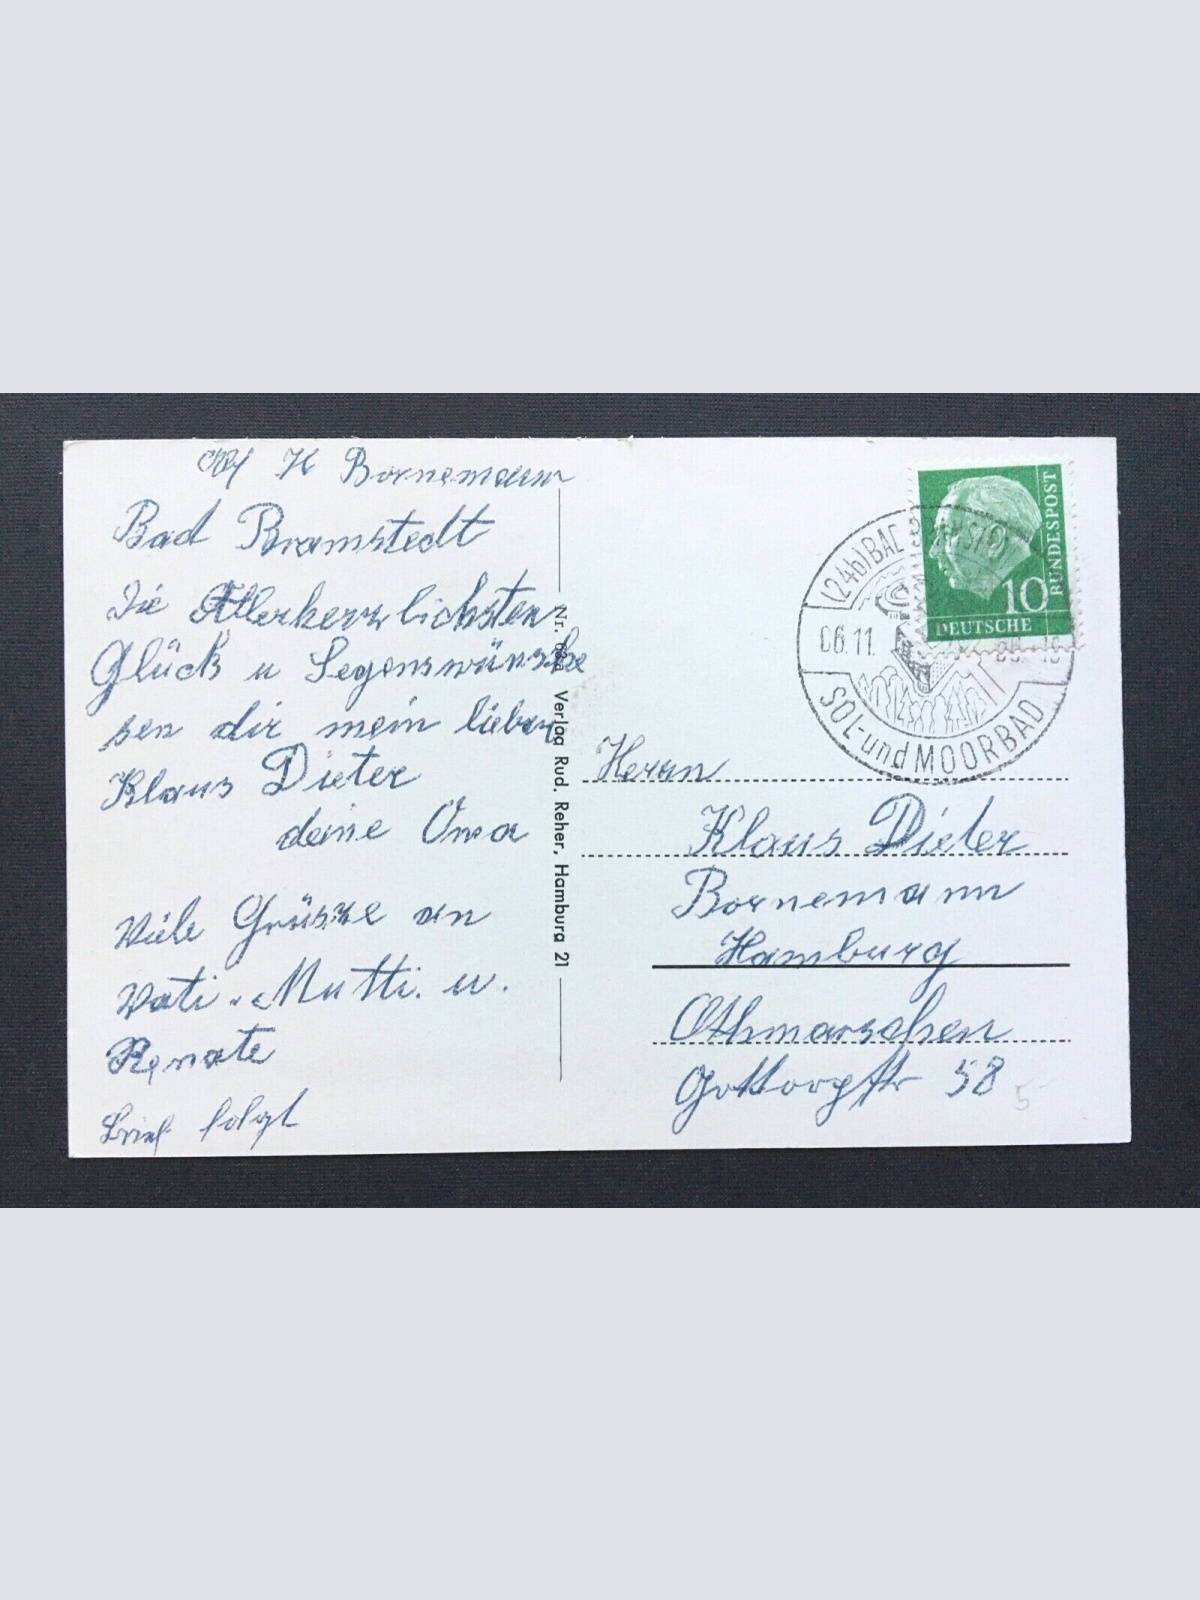 H Bornemann
Bad Bramstedt
Die Allerherrlichsten
Glück u Segenswünsche
sen dir mein lieber
Klaus Dieter
deine Oma
Viele Grüsse an
Vati u. Mutti. u.
Renate
Brief folgt
Verlag Rud. Reher, Hamburg 21
10
DEUTSCHE
BUNDESPOST
(24b) BAD
06.11.
SOL- und MOORBAD
Herrn
Klaus Dieter
Bornemann
Hamburg
Othmarschen
Gottorpstr 58
5